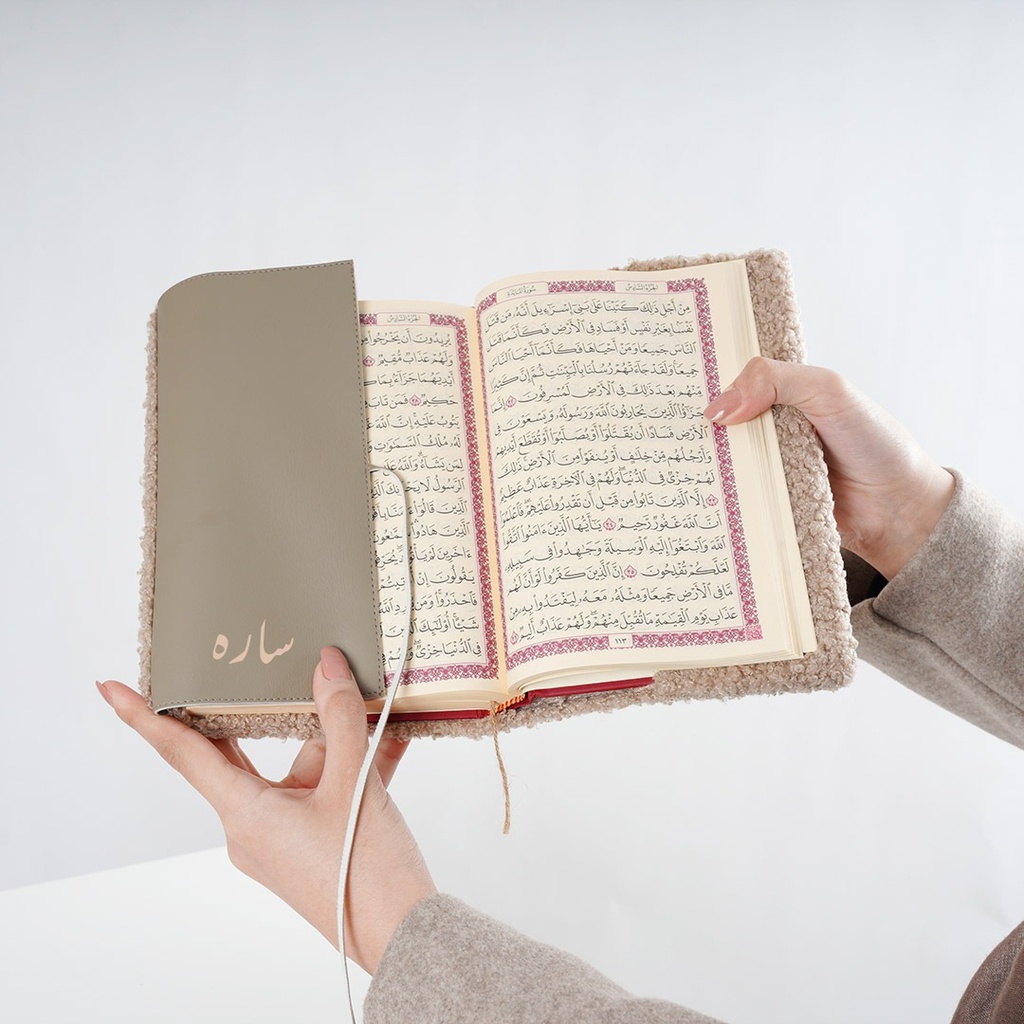 الجزء السادس
سورة المائدة
مِنْ أَجْلِ ذَٰلِكَ كَتَبْنَا عَلَىٰ بَنِىٓ إِسْرَٰٓءِيلَ أَنَّهُۥ مَن قَتَلَ
نَفْسًۢا بِغَيْرِ نَفْسٍ أَوْ فَسَادٍ فِى ٱلْأَرْضِ فَكَأَنَّمَا قَتَلَ
ٱلنَّاسَ جَمِيعًا وَمَنْ أَحْيَاهَا فَكَأَنَّمَآ أَحْيَا ٱلنَّاسَ
جَمِيعًا وَلَقَدْ جَآءَتْهُمْ رُسُلُنَا بِٱلْبَيِّنَٰتِ ثُمَّ إِنَّ كَثِيرًا
مِّنْهُم بَعْدَ ذَٰلِكَ فِى ٱلْأَرْضِ لَمُسْرِفُونَ ٣٢ إِنَّمَا
جَزَٰٓؤُا۟ ٱلَّذِينَ يُحَارِبُونَ ٱللَّهَ وَرَسُولَهُۥ وَيَسْعَوْنَ فِى
ٱلْأَرْضِ فَسَادًا أَن يُقَتَّلُوٓا۟ أَوْ يُصَلَّبُوٓا۟ أَوْ تُقَطَّعَ أَيْدِيهِمْ
وَأَرْجُلُهُم مِّنْ خِلَٰفٍ أَوْ يُنفَوْا۟ مِنَ ٱلْأَرْضِ ذَٰلِكَ
لَهُمْ خِزْىٌ فِى ٱلدُّنْيَا وَلَهُمْ فِى ٱلْءَاخِرَةِ عَذَابٌ عَظِيمٌ
٣٣ إِلَّا ٱلَّذِينَ تَابُوا۟ مِن قَبْلِ أَن تَقْدِرُوا۟ عَلَيْهِمْ فَٱعْلَمُوٓا۟
أَنَّ ٱللَّهَ غَفُورٌ رَّحِيمٌ ٣٤ يَٰٓأَيُّهَا ٱلَّذِينَ ءَامَنُوا۟ ٱتَّقُوا۟
ٱللَّهَ وَٱبْتَغُوٓا۟ إِلَيْهِ ٱلْوَسِيلَةَ وَجَٰهِدُوا۟ فِى سَبِيلِهِۦ
لَعَلَّكُمْ تُفْلِحُونَ ٣٥ إِنَّ ٱلَّذِينَ كَفَرُوا۟ لَوْ أَنَّ لَهُم
مَّا فِى ٱلْأَرْضِ جَمِيعًا وَمِثْلَهُۥ مَعَهُۥ لِيَفْتَدُوا۟ بِهِۦ مِنْ
عَذَابِ يَوْمِ ٱلْقِيَٰمَةِ مَا تُقُبِّلَ مِنْهُمْ وَلَهُمْ عَذَابٌ أَلِيمٌ ٣٦
١١٣
الجزء السادس
يُرِيدُونَ أَن يَخْرُجُوا۟
وَلَهُمْ عَذَابٌ مُّقِيمٌ ٣٧
أَيْدِيَهُمَا جَزَآءًۢ بِمَا
حَكِيمٌ ٣٨ فَمَن تَابَ
يَتُوبُ عَلَيْهِ إِنَّ ٱللَّهَ
لَهُۥ مُلْكُ ٱلسَّمَٰوَٰتِ
لِمَن يَشَآءُ وَٱللَّهُ عَلَىٰ
ٱلرَّسُولُ لَا يَحْزُنكَ
ٱلَّذِينَ قَالُوٓا۟
ٱلَّذِينَ هَادُوا۟
ءَاخَرِينَ لَمْ يَأْتُوكَ
يَقُولُونَ إِنْ
فَٱحْذَرُوا۟ وَمَن يُرِدِ ٱللَّهُ
شَيْـًٔا أُو۟لَٰٓئِكَ
فِى ٱلدُّنْيَا خِزْىٌ وَلَهُمْ
ساره